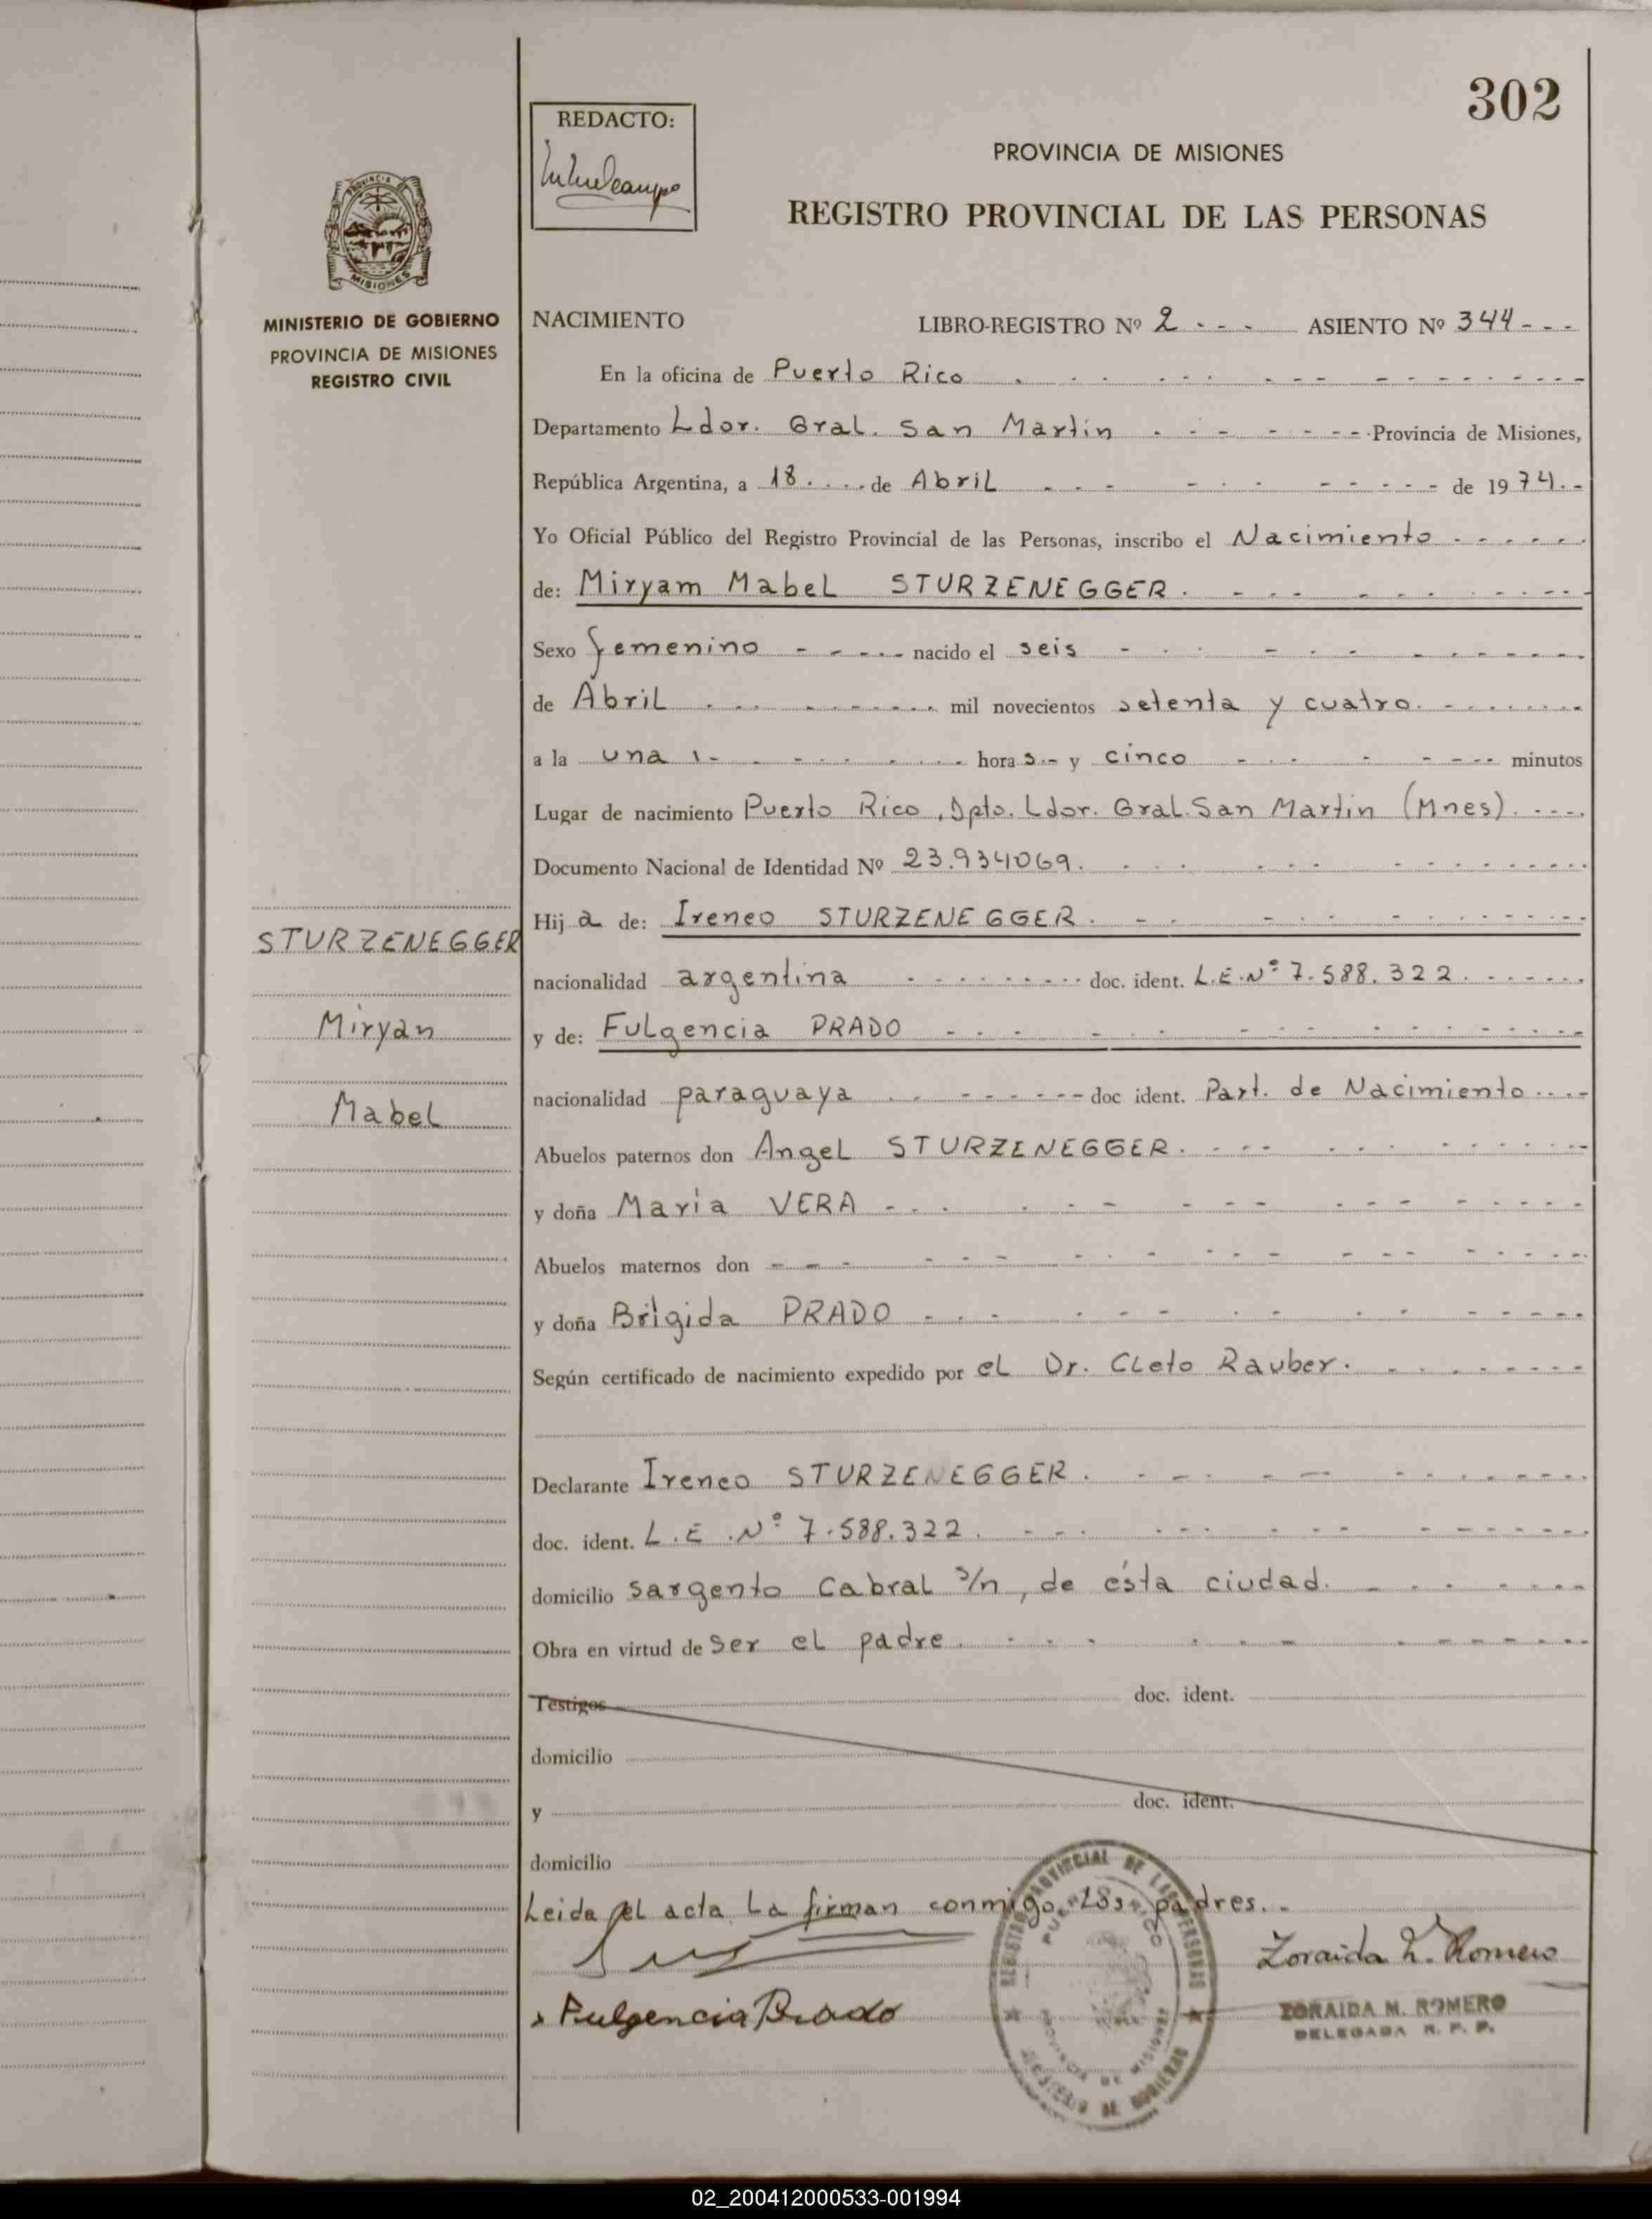 302
REDACTO:
PROVINCIA DE MISIONES
REGISTRO PROVINCIAL DE LAS PERSONAS
PROVINCIA DE
MISIONES
MINISTERIO DE GOBIERNO
PROVINCIA DE MISIONES
REGISTRO CIVIL
NACIMIENTO LIBRO-REGISTRO Nº 2 - - - ASIENTO Nº 344 - - -
En la oficina de Puerto Rico
Departamento Ldor. Gral. San Martin Provincia de Misiones,
República Argentina, a 18 de Abril de 1974.-
Yo Oficial Público del Registro Provincial de las Personas, inscribo el Nacimiento
de: Miryam Mabel STURZENEGGER.
Sexo femenino nacido el seis
de Abril mil novecientos setenta y cuatro.
a la una hora s.- y cinco minutos
Lugar de nacimiento Puerto Rico, Dpto. Ldor. Gral. San Martin (Mnes).
Documento Nacional de Identidad Nº 23.934069.
STURZENEGGER
Miryan
Mabel
Hij a de: Ireneo STURZENEGGER.
nacionalidad argentina doc. ident. L.E. Nº 7.588.322.
y de: Fulgencia PRADO
nacionalidad paraguaya doc ident. Part. de Nacimiento
Abuelos paternos don Angel STURZENEGGER.
y doña Maria VERA
Abuelos maternos don - - -
y doña Brigida PRADO
Según certificado de nacimiento expedido por el Dr. Cleto Rauber.
Declarante Ireneo STURZENEGGER.
doc. ident. L.E. Nº 7.588.322.
domicilio Sargento Cabral s/n, de ésta ciudad.
Obra en virtud de ser el padre.
Testigos doc. ident.
domicilio
y doc. ident.
domicilio
Leida el acta La firman conmigo los padres.
Fulgencia Prado
Zoraida M. Romero
ZORAIDA M. ROMERO
DELEGADA R. P. P.
REGISTRO PROVINCIAL DE LAS PERSONAS
PUERTO RICO
PROVINCIA DE MISIONES
MINISTERIO DE GOBIERNO
02_200412000533-001994